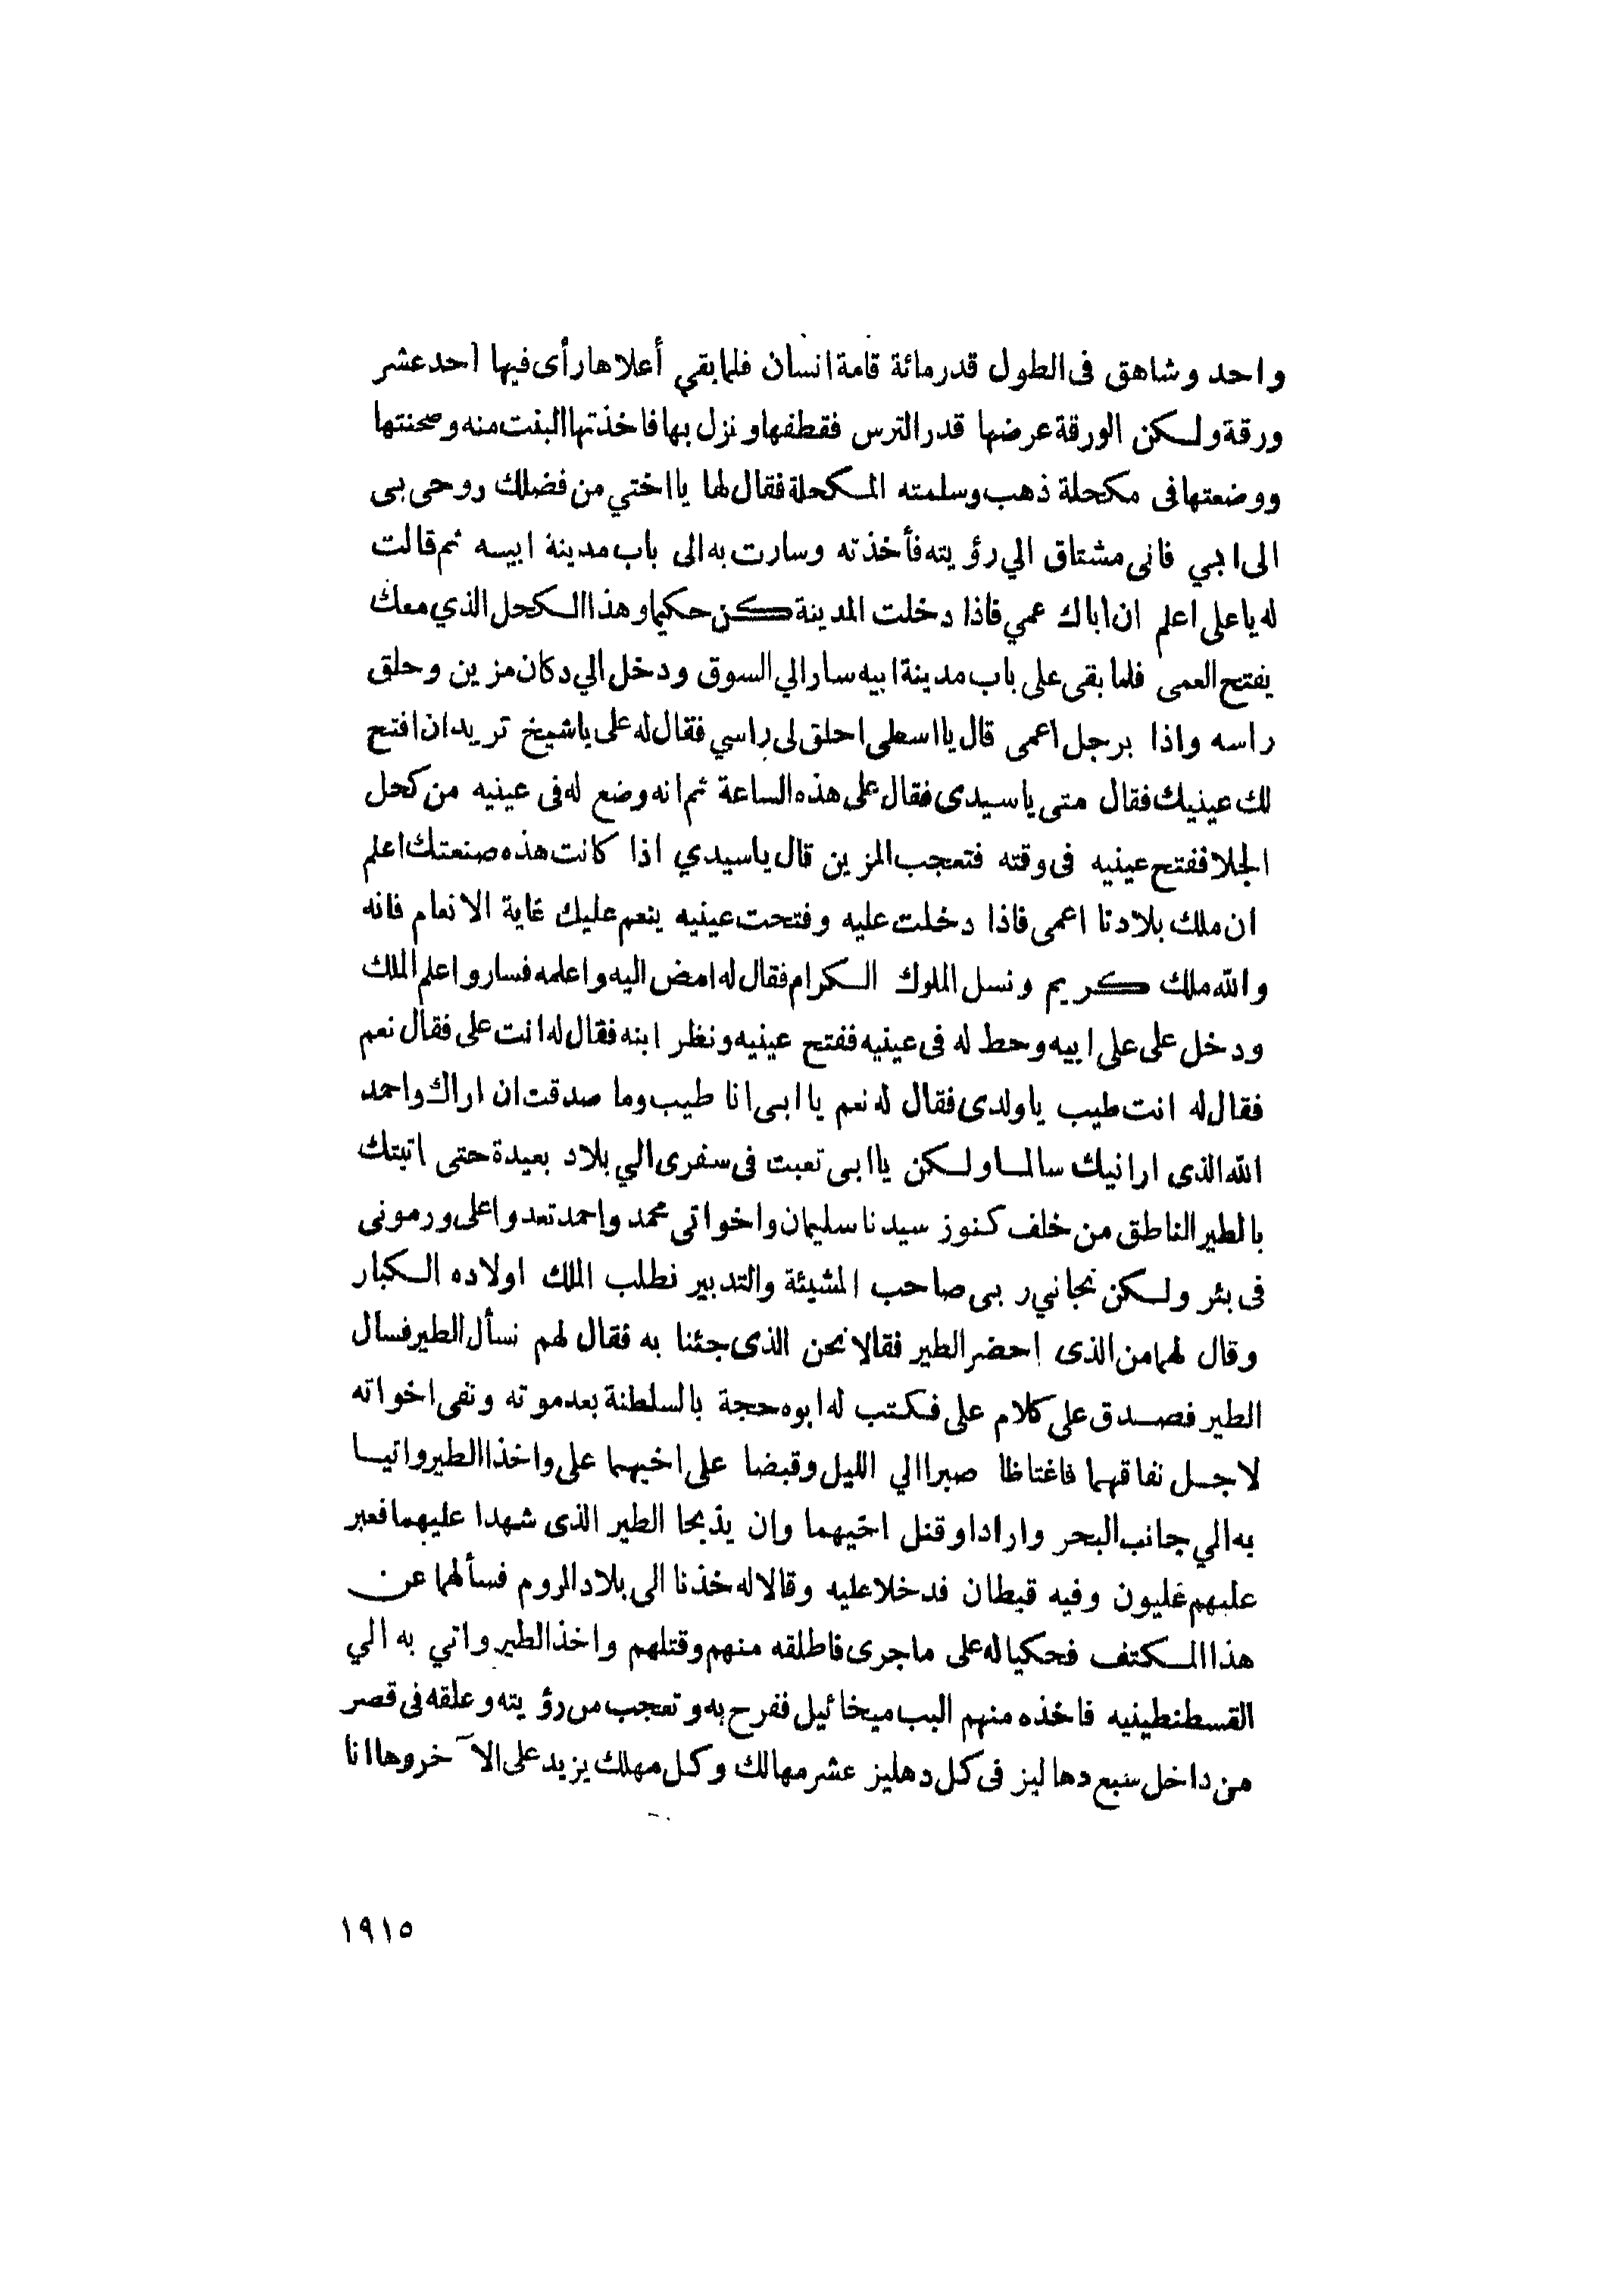 واحد وشاهق فى الطول قدر مائة قامة انسان فلما بقي أعلاها رأى فيها احد عشر
ورقة ولكن الورقة عرضها قدر الترس فقطفها ونزل بها فاخذتها البنت منه وصحنتها
ووضعتها فى مكحلة ذهب وسلمته المكحلة فقال لها يا اختي من فضلك روحى بى
الى ابي فانى مشتاق الي رؤيته فأخذته وسارت به الى باب مدينة ابيه ثم قالت
له يا على اعلم ان اباك عمي فاذا دخلت المدينة كن حكيما وهذا الكحل الذي معك
يفتح العمى فلما بقى على باب مدينة ابيه سار الي السوق ودخل الي دكان مزين وحلق
راسه واذا برجل اعمى قال يا اسطى احلق لى راسي فقال له على يا شيخ تريد ان افتح
لك عينيك فقال متى يا سيدى فقال على هذه الساعة ثم انه وضع له فى عينيه من كحل
الجلا ففتح عينيه فى وقته فتعجب المزين قال يا سيدي اذا كانت هذه صنعتك اعلم
ان ملك بلادنا اعمى فاذا دخلت عليه وفتحت عينيه ينعم عليك غاية الانعام فانه
والله ملك كريم ونسل الملوك الكرام فقال له امض اليه واعلمه فسار واعلم الملك
ودخل على على ابيه وحط له فى عينيه ففتح عينيه ونظر ابنه فقال له انت على فقال نعم
فقال له انت طيب يا ولدى فقال له نعم يا ابى انا طيب وما صدقت ان اراك واحمد
الله الذى ارانيك سالما ولكن يا ابى تعبت فى سفرى الي بلاد بعيدة حتى اتيتك
بالطير الناطق من خلف كنوز سيدنا سليمان واخواتى محمد واحمد تعدوا على ورمونى
فى بئر ولكن نجاني ربى صاحب المشيئة والتدبير فطلب الملك اولاده الكبار
وقال لهما من الذى احضر الطير فقالا نحن الذى جئنا به فقال لهم نسأل الطير فسال
الطير فصدق على كلام على فكتب له ابوه حجة بالسلطنة بعد موته ونفى اخواته
لاجل نفاقهما فاغتاظا صبرا الي الليل وقبضا على اخيهما على واخذا الطير واتيا
به الي جانب البحر وارادا وقتل اخيهما وان يذبحا الطير الذى شهدا عليهما فعبر
عليهم غليون وفيه قبطان فدخلا عليه وقالا له خذنا الى بلاد الروم فسألهما عن
هذا المكتف فحكيا له على ما جرى فاطلقه منهم وقتلهم واخذ الطير واتي به الي
القسطنطينيه فاخذه منهم البب ميخائيل ففرح به وتعجب من رؤيته وعلقه فى قصر
من داخل سبع دهاليز فى كل دهليز عشر مهالك وكل مهلك يزيد على الآخر وها انا
١٩١٥